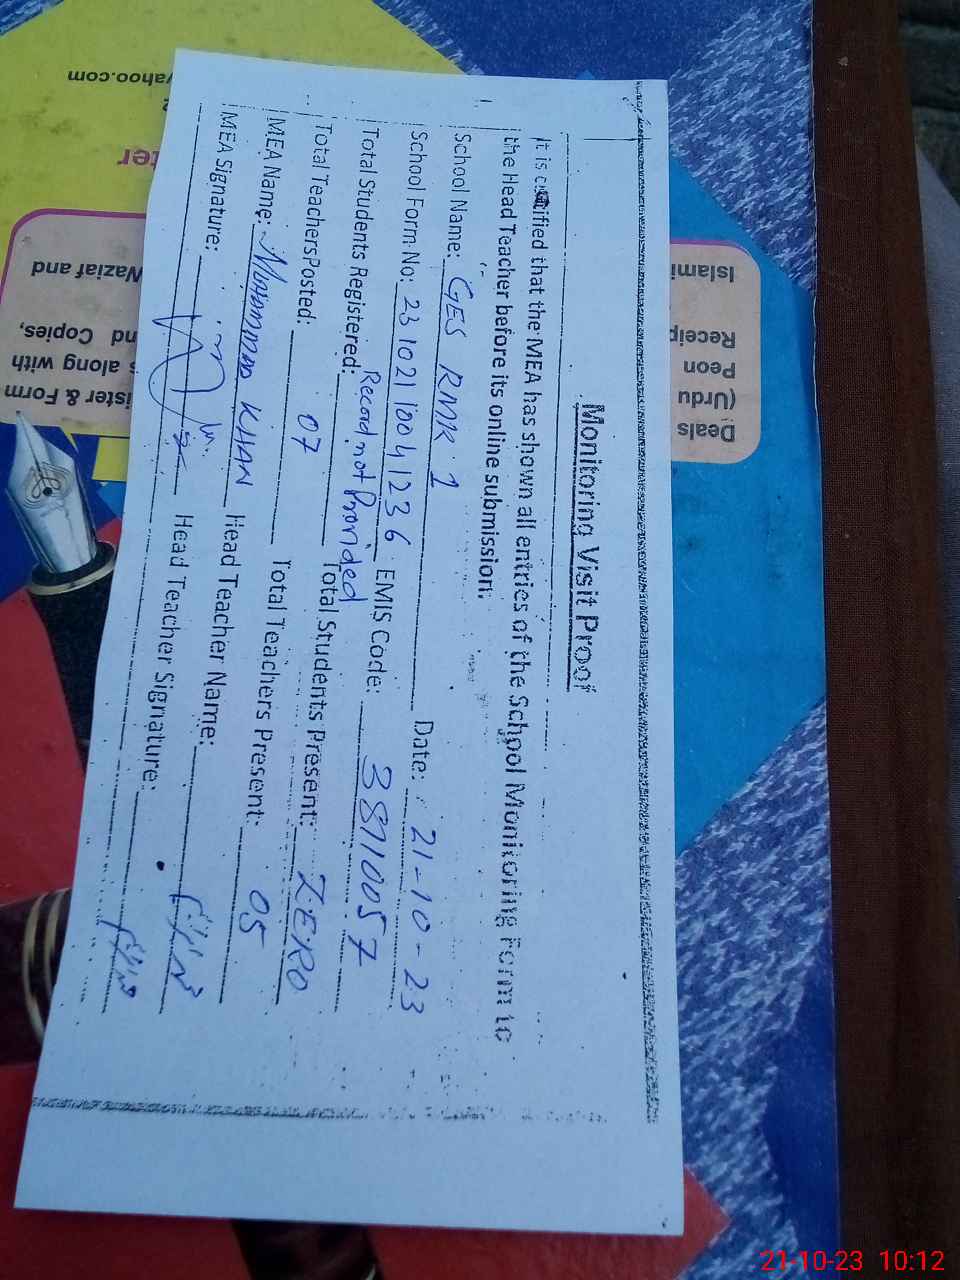 Monitoring Visit Proof
It is certified that the MEA has shown all entries of the School Monitoring Form to
the Head Teacher before its online submission.
School Name: GES RMK 1 Date: 21-10-23
School Form No: 231021 1004 1236 EMIS Code: 38710057
Total Students Registered: Record not Provided Total Students Present: ZERO
Total Teachers Posted: 07 Total Teachers Present: 05
MEA Name: KHAN Head Teacher Name:
MEA Signature: Head Teacher Signature:
ahoo.com
ter
Waziaf and
nd Copies,
s along with
ister & Form
Islami
Receip
Peon
(Urdu
Deals
21-10-23 10:12